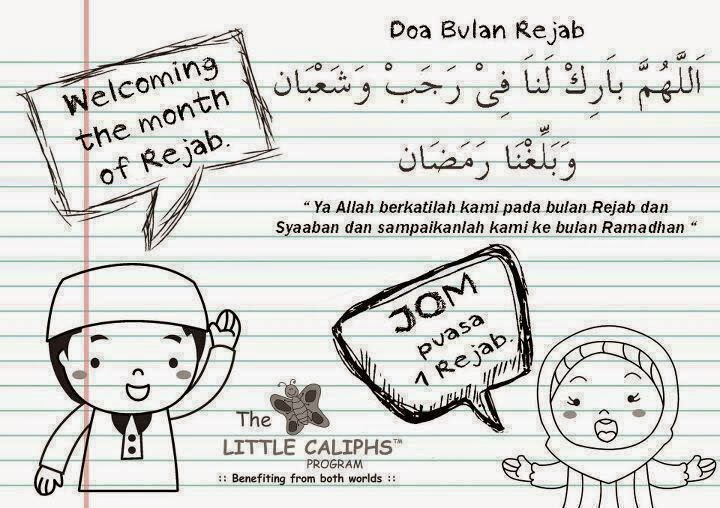 Doa Bulan Rejab
Welcoming
the month
of Rejab.
اَللَّهُمَّ بَارِكْ لَنَا فِىْ رَجَبْ وَشَعْبَان
وَبَلِّغْنَا رَمَضَان
“ Ya Allah berkatilah kami pada bulan Rejab dan
Syaaban dan sampaikanlah kami ke bulan Ramadhan “
JOM
puasa
1 Rejab.
The
LITTLE CALIPHS™
PROGRAM
:: Benefiting from both worlds ::